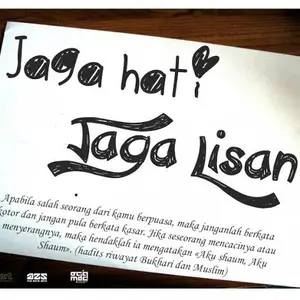 Jaga hati
Jaga Lisan
Apabila salah seorang dari kamu berpuasa, maka janganlah berkata
kotor dan jangan pula berkata kasar. Jika seseorang mencacinya atau
menyerangnya, maka hendaklah ia mengatakan «Aku shaum, Aku
Shaum». (hadits riwayat Bukhari dan Muslim)